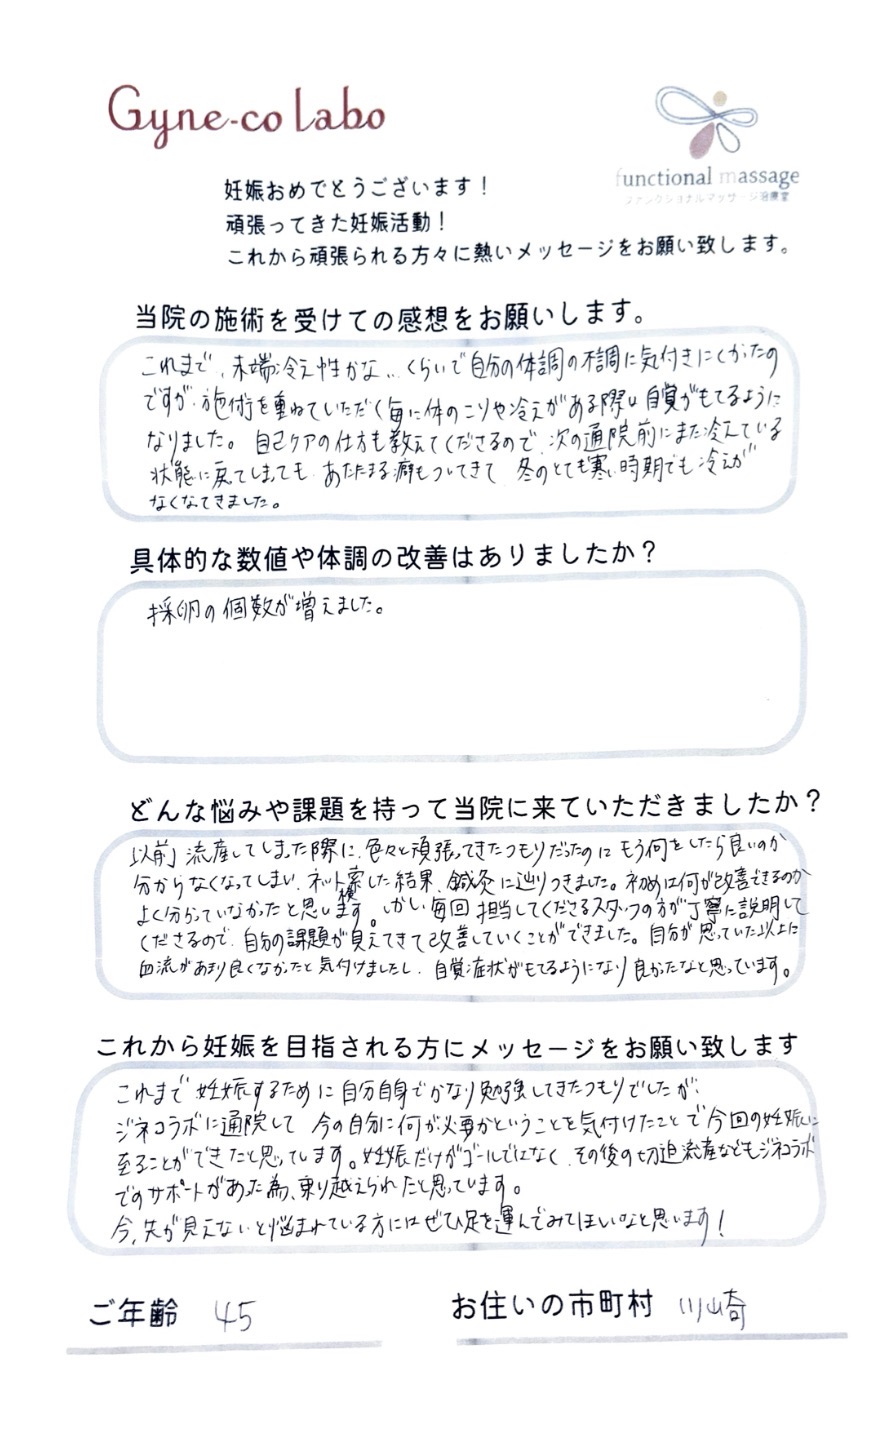 Gyne-co labo
functional massage
ファンクショナルマッサージ治療室
妊娠おめでとうございます！
頑張ってきた妊娠活動！
これから頑張られる方々に熱いメッセージをお願い致します。
当院の施術を受けての感想をお願いします。
これまで、末端冷え性かな…くらいで自分の体調の不調に気付きにくかったの
ですが、施術を重ねていただく毎に体のコリや冷えがある際は自覚がもてるように
なりました。自己ケアの仕方も教えてくださるので、次の通院前にまた冷えている
状態に戻てしまっても、あたたまる癖もついてきて、冬のとても寒い時期でも冷えが
なくなってきました。
具体的な数値や体調の改善はありましたか？
採卵の個数が増えました。
どんな悩みや課題を持って当院に来ていただきましたか？
以前 流産してしまった際に、色々と頑張ってきたつもりだったのに もう何をしたら良いのか
分からなくなってしまい、ネット検索した結果、鍼灸に辿りつきました。初めは何が改善できるのか
よく分かっていなかったと思います。しかし毎回 担当してくださるスタッフの方が丁寧に説明して
くださるので、自分の課題が見えてきて改善していくことができました。自分が思っていた以上に
血流があまり良くなかったと気付けましたし、自覚症状がもてるようになり良かったなと思っています。
これから妊娠を目指される方にメッセージをお願い致します
これまで 妊娠するために自分自身でかなり勉強してきたつもりでしたが、
ジネコラボに通院して 今の自分に何が必要かということを気付けたことで今回の妊娠に
至ることができたと思っています。妊娠だけがゴールではなく、その後の切迫流産などもジネコラボ
でのサポートがあった為、乗り越えられたと思っています。
今、先が見えないと悩まれている方にはぜひ足を運んでみてほしいなと思います！
ご年齢 45
お住いの市町村 川崎